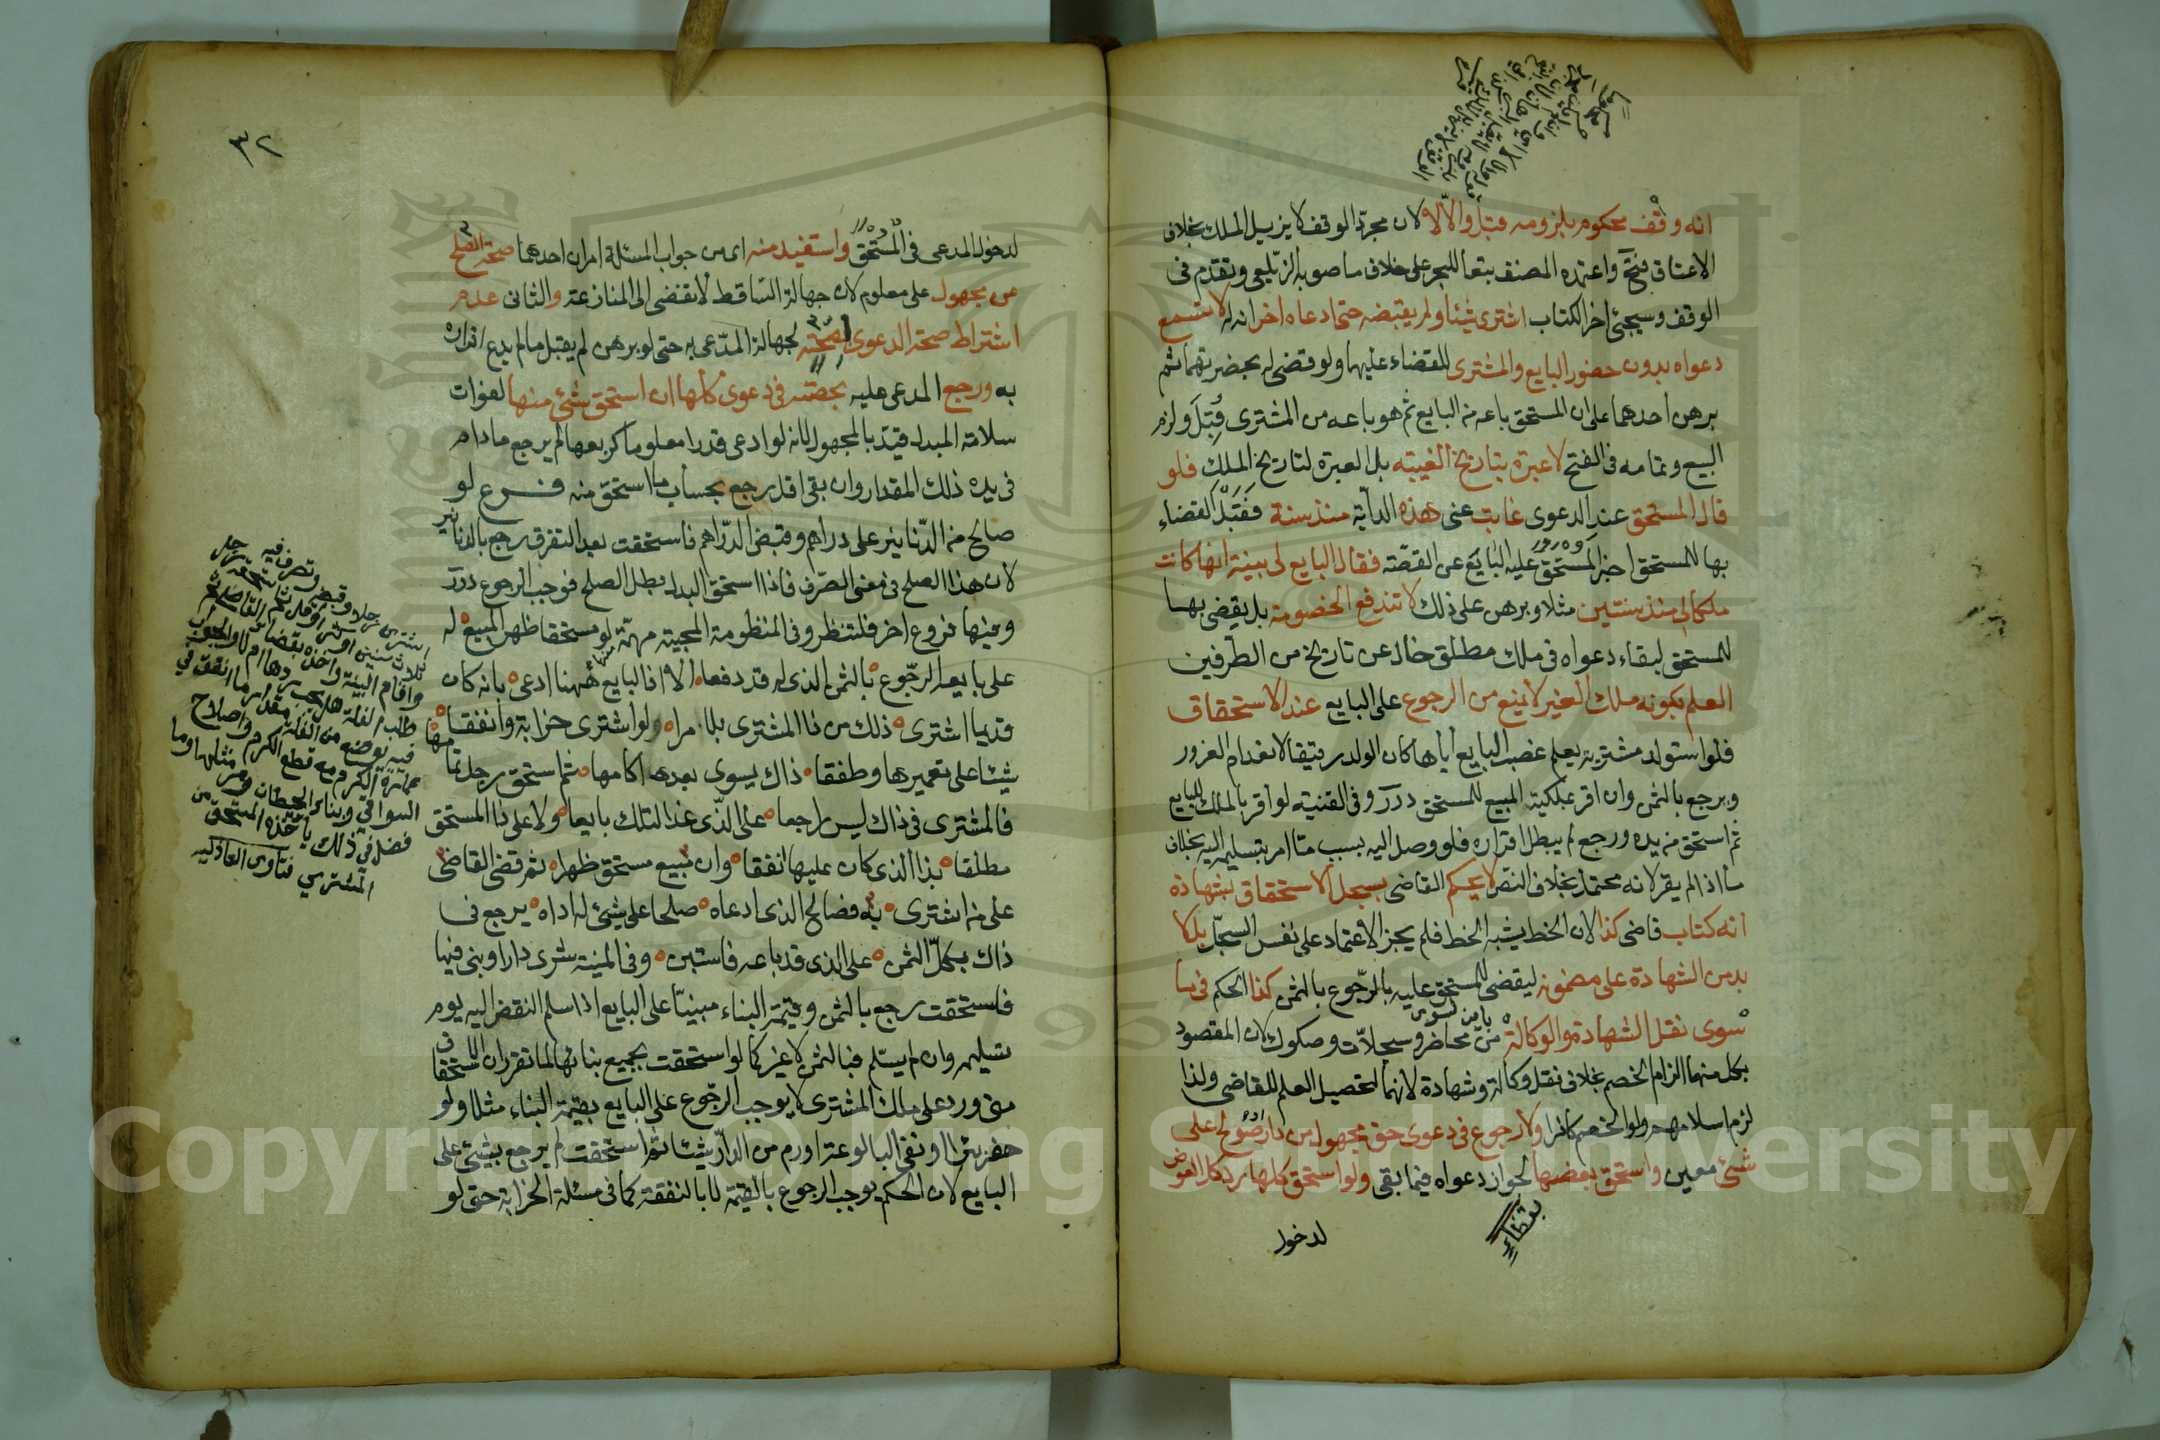 انه وقف محكوم بلزومه قبل والا لا لان مجرد الوقف لا يزيل الملك بخلاف
الاعتاق فتح واعتمده المصنف تبعا للبحر على خلاف ما صوبه الزيلعي وتقدم في
الوقف وسيجئ اخر الكتاب اشترى شيئا ولم يقبضه حتى ادعاه اخر انه له لا تسمع
دعواه بدون حضور البايع والمشترى للقضاء عليهما ولو قضى له بحضرتهما ثم
برهن احدهما على ان المستحق باعه من البايع ثم هو باعه من المشترى قُبِلَ ولزم
البيع وتمامه في الفتح لا عبرة بتاريخ الغيبة بل العبرة لتاريخ الملك فلو
قال المستحق عند الدعوى غابت عنى هذه الدابة منذ سنة فقبل القضاء
بها للمستحق اخبر المستحق عليه البايع عن القصة فقال البايع لى بينة انها كانت
ملكا لى منذ سنتين مثلا وبرهن على ذلك لا تندفع الخصومة بل يقضى بها
للمستحق لبقاء دعواه في ملك مطلق خال عن تاريخ من الطرفين
العلم بكونه ملك الغير لا يمنع من الرجوع على البايع عند الاستحقاق
فلو استولد مشترية يعلم غصب البايع اياها كان الولد رقيقا لانعدام الغرور
ويرجع بالثمن وان اقر بملكية المبيع للمستحق درر وفى القنية لو اقر بالملك للبايع
ثم استحق من يده ورجع لم يبطل اقراره فلو وصل اليه بسبب ما امر بتسليمه اليه بخلاف
ما اذا لم يقر لانه محتمل بخلاف النص لا يحكم القاضى بسجل الاستحقاق بشهادة
انه كتاب قاضى كذا لان الخط يشبه الخط فلم يجز الاعتماد على نفس السجل بل لا
بد من الشهادة على مضمونه ليقضى للمستحق عليه بالرجوع بالثمن كذا الحكم في ما
سوى نقل الشهادة والوكالة من محاضر وسجلات وصكوك لان المقصود
بكل منها الزام الخصم بخلاف نقل وكالة وشهادة لانهما لتحصيل العلم للقاضى ولذا
لزم اسلامهم ولو الخصم كافرا ولا رجوع في دعوى حق مجهول من دار صولح على
شئ معين واستحق بعضها لجواز دعواه فيما بقى ولو استحق كلها رد كل العوض
لدخول
٣٢
لدخول المدعى في المستحق واستفيد منه اى من جواب المسئلة امران احدهما صحة الصلح
عن مجهول على معلوم لان جهالة الساقط لا تفضى الى المنازعة والثانى عدم
اشتراط صحة الدعوى لصحته لجهالة المدعى به حتى لو برهن لم يقبل ما لم يدع اقراره
به ورجع المدعى عليه بحصته في دعوى كلها ان استحق شئ منها لفوات
سلامة المبدل قيد بالمجهول لانه لو ادعى قدرا معلوما كربعها لم يرجع ما دام
في يده ذلك المقدار وان بقى اقل رجع بحساب ما استحق منه فرع لو
صالح من الدنانير على دراهم وقبض الدراهم فاستحقت بعد التفرق رجع بالدنانير
لان هذا الصلح في معنى الصرف فاذا استحق البدل بطل الصلح فوجب الرجوع درر
وفيها فروع اخر فلتنظر وفى المنظومة المحبية مهمة لو مستحقا ظهر المبيع له
على بايعه الرجوع بالثمن الذى له قد دفعا الا اذا البايع ههنا ادعى بانه كان
قديما اشترى ذلك من ذا المشترى بلا مرا ولو اشترى خرابة وانفقا
شيئا على تعميرها وطفقا ذاك يسوى بعدها اكامها ثم استحق رجل تمامها
فالمشترى في ذاك ليس راجعا على الذى غدا لتلك بايعا ولا على ذا المستحق
مطلقا بذا الذى كان عليها انفقا وان مبيع مستحق ظهرا ثم قضى القاضى
على من اشترى به فصالح الذى ادعاه صلحا على شئ له اداه يرجع في
ذاك بكل الثمن على الذى قد باعه فاستبن وفى المنية شرى دارا وبنى فيها
فاستحقت رجع بالثمن وقيمة البناء مبنيا على البايع اذا سلم النقض اليه يوم
تسليمه وان لم يسلم فبالثمن لا غير كما لو استحقت بجميع بنائها لما تقرر ان الاستحقاق
متى ورد على ملك المشترى لا يوجب الرجوع على البايع بقيمة البناء مثلا ولو
حفر بئرا او نقى البالوعة او رم من الدار شيئا ثم استحقت لم يرجع بشئ على
البايع لان الحكم يوجب الرجوع بالقيمة لا بالنفقة كما في مسئلة الخرابة حتى لو
وطلب الغلة هل يجب ردها ام لا والجواب
فيه يوضع من الغلة مقدار ما انفق في
عمارة الكرم من قطع الكرم واصلاح
السواقى وبناء الحيطان ومرمتها وما
فضل من ذلك ياخذه المستحق من
المشترى فتاوى العادلية
Copyright © King Saud University